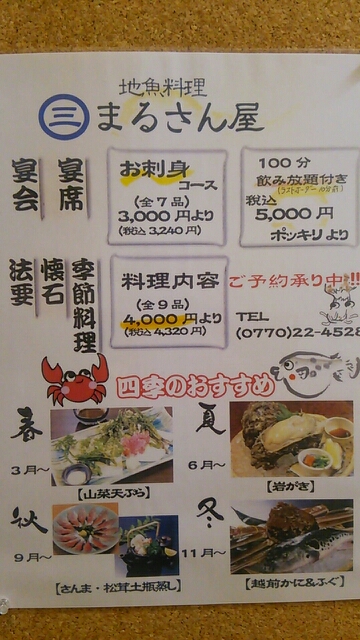 地魚料理
三 まるさん屋
宴会
宴席
お刺身
コース
(全7品)
3,000円より
(税込 3,240円)
100分
飲み放題付き
(ラストオーダー
税込
5,000円
ポッキリより
法要
懐石
季節料理
料理内容
(全9品)
4,000円より
(税込 4,320円)
ご予約承り中!!
TEL
(0770)22-4528
四季のおすすめ
春
3月～
【山菜天ぷら】
夏
6月～
【岩がき】
秋
9月～
【さんま・松茸土瓶蒸し】
冬
11月～
【越前かに&ふぐ】